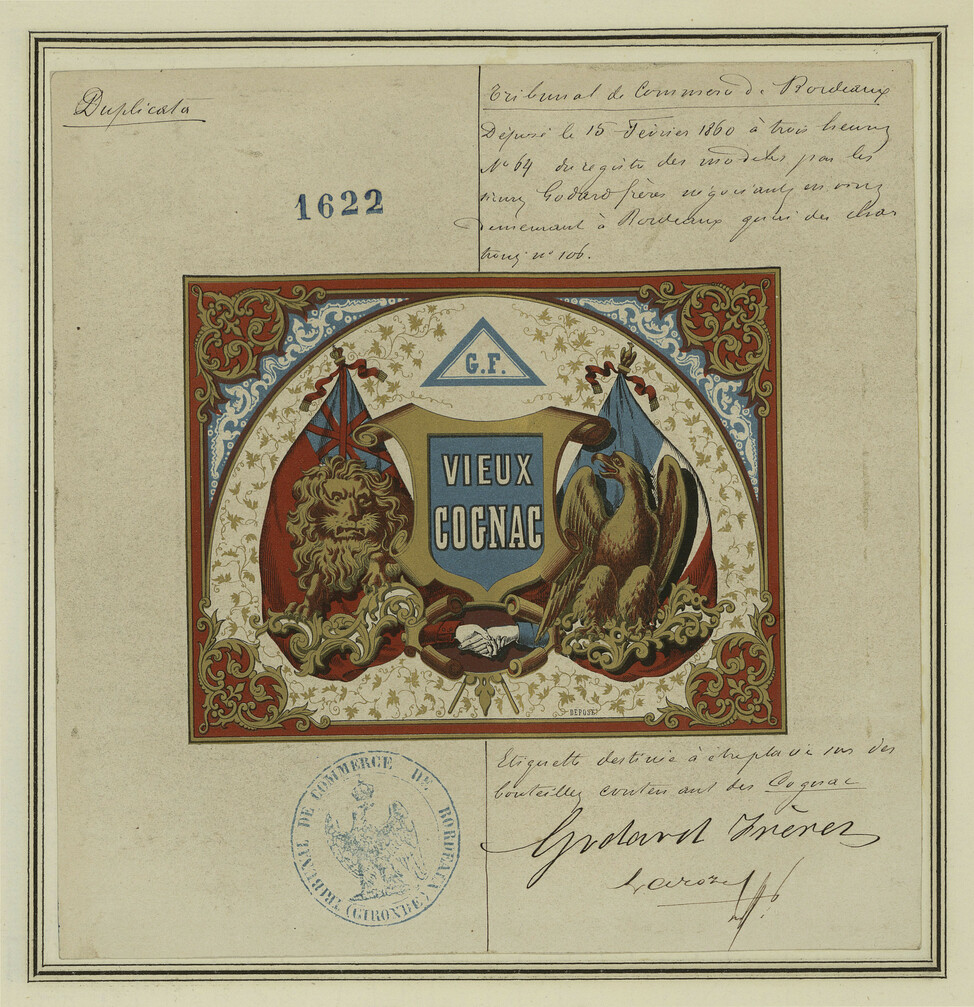 Duplicata
1622
Tribunal de Commerce de Bordeaux
Déposé le 15 Février 1860 à trois heures
No 64 du registre des modeles par les
sieurs Godard frères négociants en vins
demeurant à Bordeaux quai des char
trons no 106.
G.F.
VIEUX
COGNAC
DÉPOSÉ
Etiquette destinée à être placée sur des
bouteilles contenant des Cognac
Godard Frères
TRIBUNAL DE COMMERCE DE BORDEAUX
(GIRONDE)